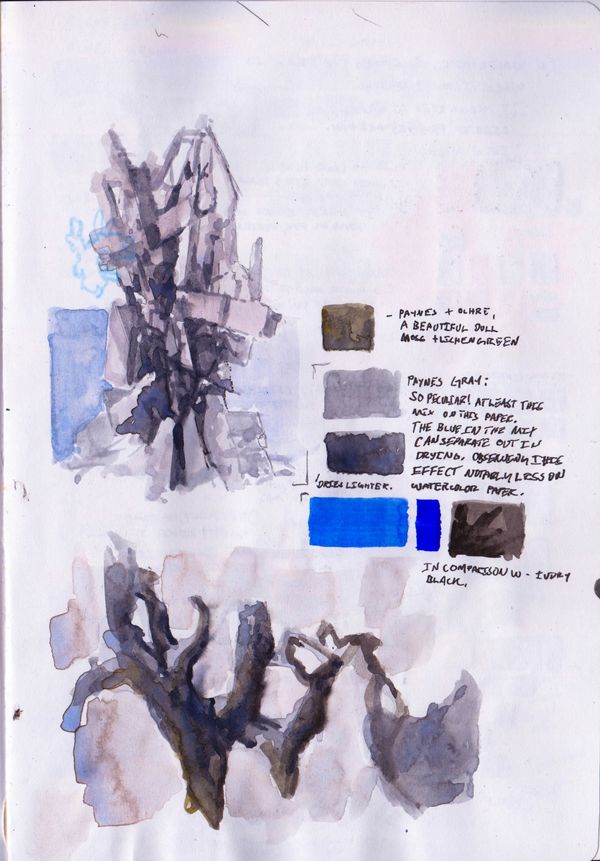 - PAYNES + OCHRE,
A BEAUTIFUL DULL
MOSS + LICHEN GREEN
PAYNES GRAY:
SO PECULIAR! AT LEAST THIS
MIX ON THIS PAPER.
THE BLUE IN THE MIX
CAN SEPARATE OUT IN
DRYING, OBSERVING THIS
EFFECT NOTABLY LESS ON
WATERCOLOR PAPER.
DRIES LIGHTER.
IN COMPARISON W - IVORY
BLACK.